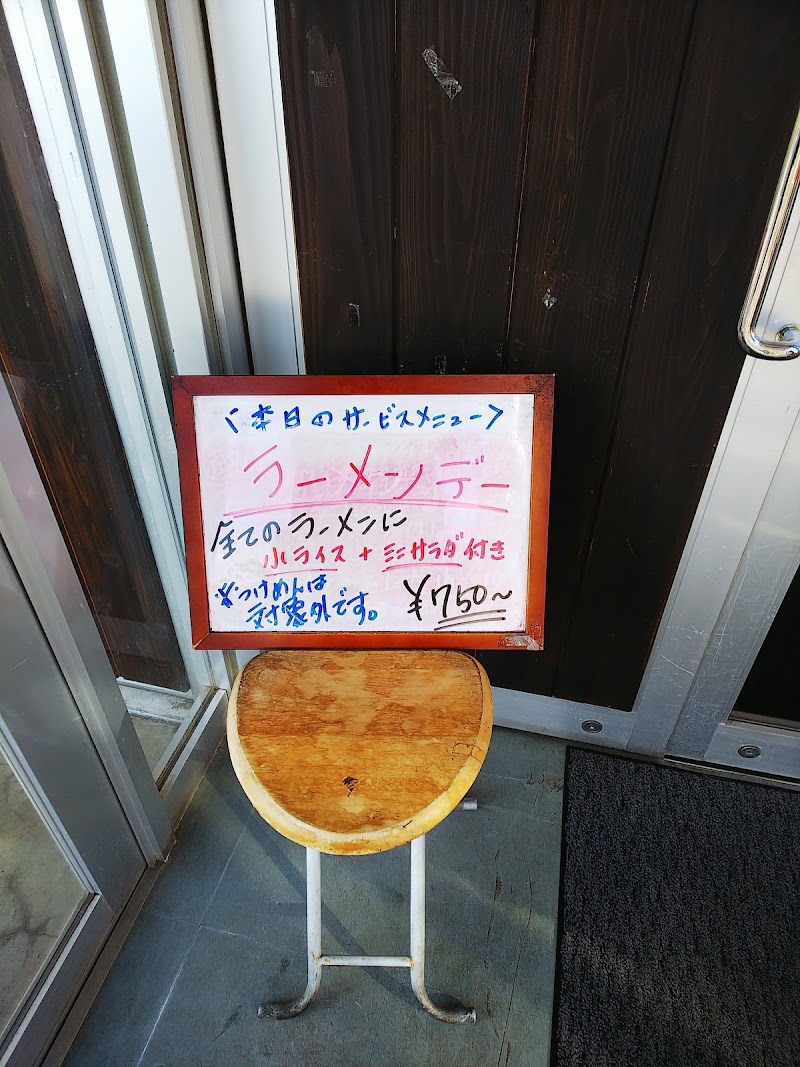 <本日のサービスメニュー>
ラーメンデー
全てのラーメンに
小ライス+ミニサラダ付き
※つけめんは
対象外です。
¥750~